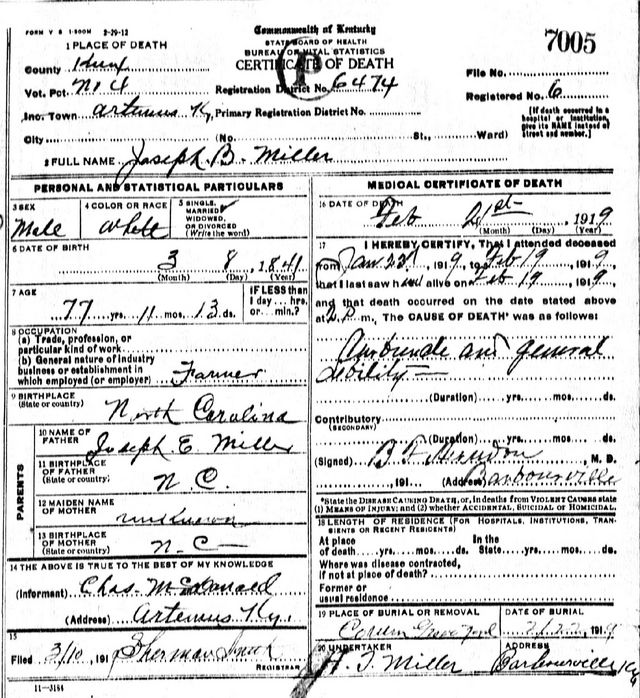 FORM V S 1-500M 2-29-12
Commonwealth of Kentucky
STATE BOARD OF HEALTH
BUREAU OF VITAL STATISTICS
CERTIFICATE OF DEATH
7005
1 PLACE OF DEATH
County Knox
Vot. Pct. No. 4
Inc. Town Artemus Ky,
City (No. St., Ward)
Registration District No. 6474
Primary Registration District No.
File No.
Registered No. 6
[If death occurred in a hospital or institution, give its NAME instead of street and number.]
2 FULL NAME Joseph B. Miller
PERSONAL AND STATISTICAL PARTICULARS
3 SEX
Male
4 COLOR OR RACE
White
5 SINGLE, MARRIED, WIDOWED, OR DIVORCED (Write the word)
6 DATE OF BIRTH
3 8, 1841
(Month) (Day) (Year)
7 AGE
77 yrs. 11 mos. 13 ds.
IF LESS than 1 day ... hrs. or ... min.?
8 OCCUPATION
(a) Trade, profession, or particular kind of work
(b) General nature of industry business or establishment in which employed (or employer) Farmer
9 BIRTHPLACE
(State or country) North Carolina
PARENTS
10 NAME OF FATHER Joseph E. Miller
11 BIRTHPLACE OF FATHER
(State or country) N.C.
12 MAIDEN NAME OF MOTHER unknown
13 BIRTHPLACE OF MOTHER
(State or country) N-C-
14 THE ABOVE IS TRUE TO THE BEST OF MY KNOWLEDGE
(Informant) Chas. McDonald
(Address) Artemus Ky.
15
Filed 3/10, 191 Sherman
REGISTRAR
11-3184
MEDICAL CERTIFICATE OF DEATH
16 DATE OF DEATH
Feb 21st, 1919
(Month) (Day) (Year)
17 I HEREBY CERTIFY, That I attended deceased
from Jan 23d, 1919, to Feb 19, 1919,
that I last saw alive on Feb 19, 1919,
and that death occurred on the date stated above
at 2 P. m. The CAUSE OF DEATH* was as follows:
and general
debility
(Duration) yrs. mos. ds.
Contributory
(SECONDARY)
(Duration) yrs. mos. ds.
(Signed) B F Herndon, M. D.
, 191 (Address) Barbourville
*State the DISEASE CAUSING DEATH, or, in deaths from VIOLENT CAUSES state
(1) MEANS OF INJURY; and (2) whether ACCIDENTAL, SUICIDAL OR HOMICIDAL.
18 LENGTH OF RESIDENCE (FOR HOSPITALS, INSTITUTIONS, TRANSIENTS OR RECENT RESIDENTS)
At place of death yrs. mos. ds. In the State yrs. mos. ds.
Where was disease contracted,
if not at place of death?
Former or
usual residence
19 PLACE OF BURIAL OR REMOVAL
DATE OF BURIAL
2/22, 1919
20 UNDERTAKER
H. J. Miller
ADDRESS
Barbourville Ky